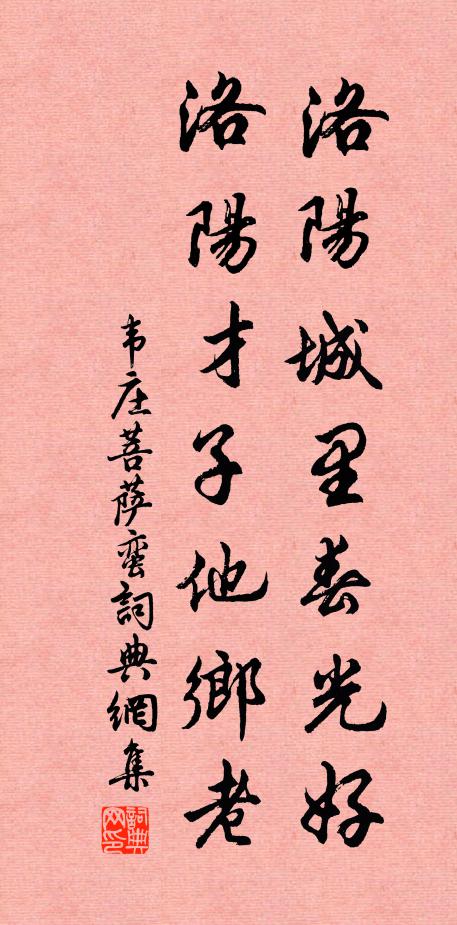 洛陽城里春光好
洛陽才子他鄉老
韦庄菩萨蛮詞典網集
詞典网印